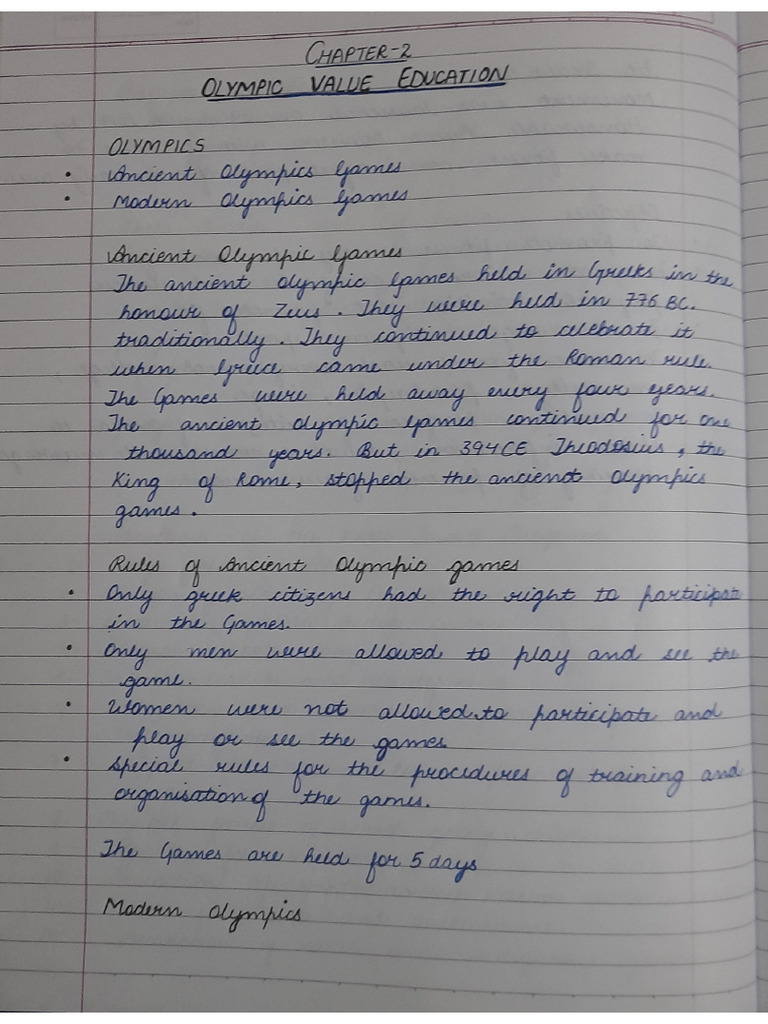 CHAPTER-2
OLYMPIC VALUE EDUCATION
OLYMPICS
• Ancient Olympics Games
• Modern Olympics Games
Ancient Olympic Games
The ancient olympic Games held in Greeks in the
honour of Zeus. They were held in 776 BC.
traditionally. They continued to celebrate it
when Greece came under the Roman rule.
The Games were held away every four years.
The ancient olympic games continued for one
thousand years. But in 394CE Theodosius, the
King of Rome, stopped the ancienot olympics
games.
Rules of Ancient Olympic games
• Only greek citizens had the right to participate
in the Games.
• Only men were allowed to play and see the
game.
• Women were not allowed to participate and
play or see the games
• Special rules for the procedures of training and
organisation of the games.
The Games are held for 5 days
Modern Olympics